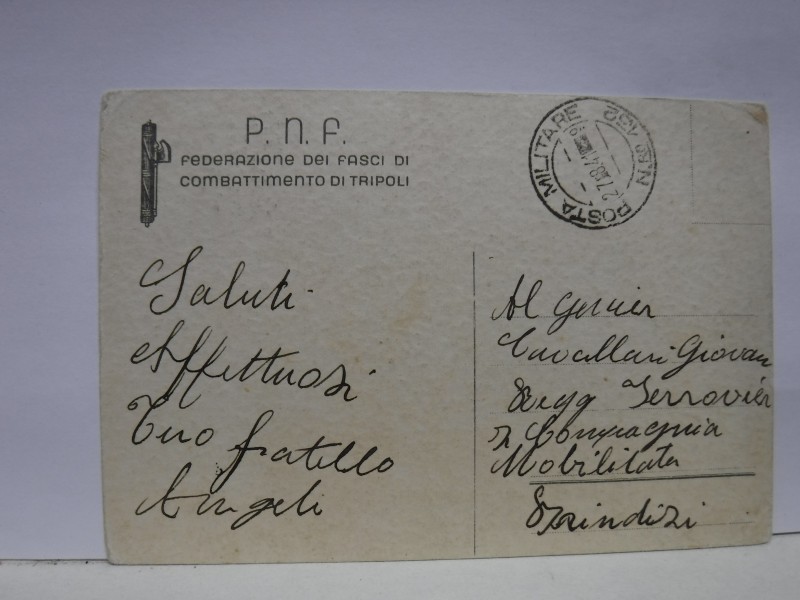 P.N.F.
FEDERAZIONE DEI FASCI DI
COMBATTIMENTO DI TRIPOLI
POSTA MILITARE
Saluti
Affettuosi
tuo fratello
Angeli
Al Genier
Cavallari Giovan
Regg Ferrovier
Compagnia
Mobilitata
Brindisi